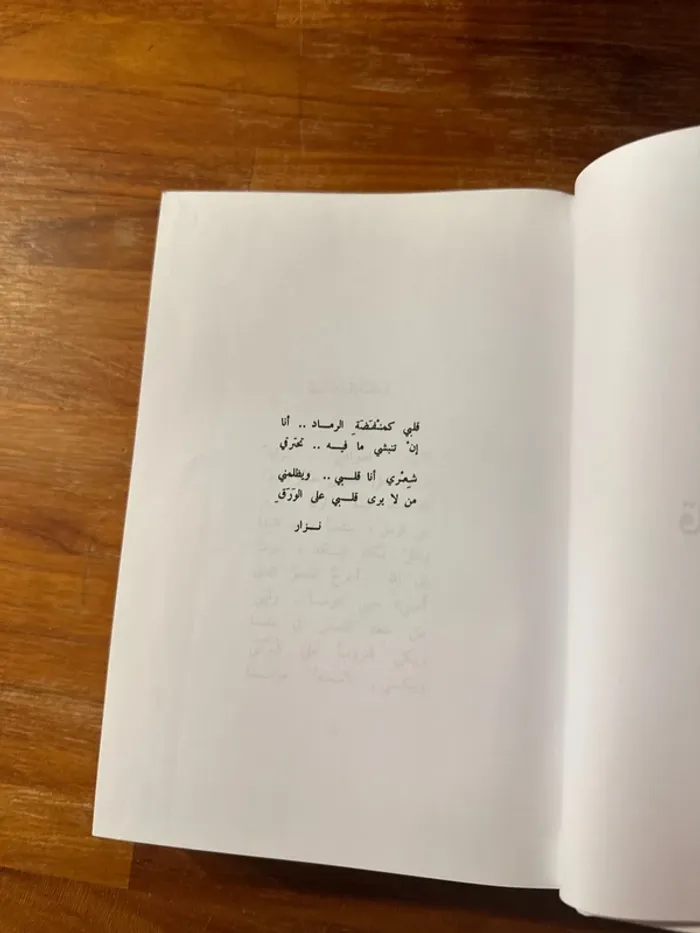 قلبي كمنْفَضَةِ الرمــاد .. أنا
إنْ تنبشي ما فيــه .. تحترقي
شِعْري أنا قلــبي .. ويظلمني
من لا يرى قلــبي على الوَرَقِ
نــزار